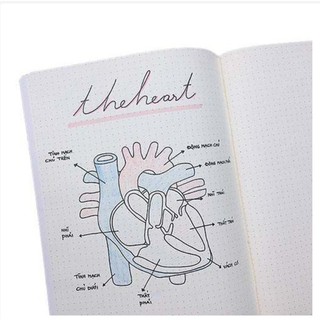 the heart
TĨNH MẠCH
CHỦ TRÊN
ĐỘNG MẠCH CHỦ
ĐỘNG MẠCH PHỔI
NHĨ TRÁI
NHĨ
PHẢI
THẤT TRÁI
TĨNH MẠCH
CHỦ DƯỚI
THẤT
PHẢI
VÁCH